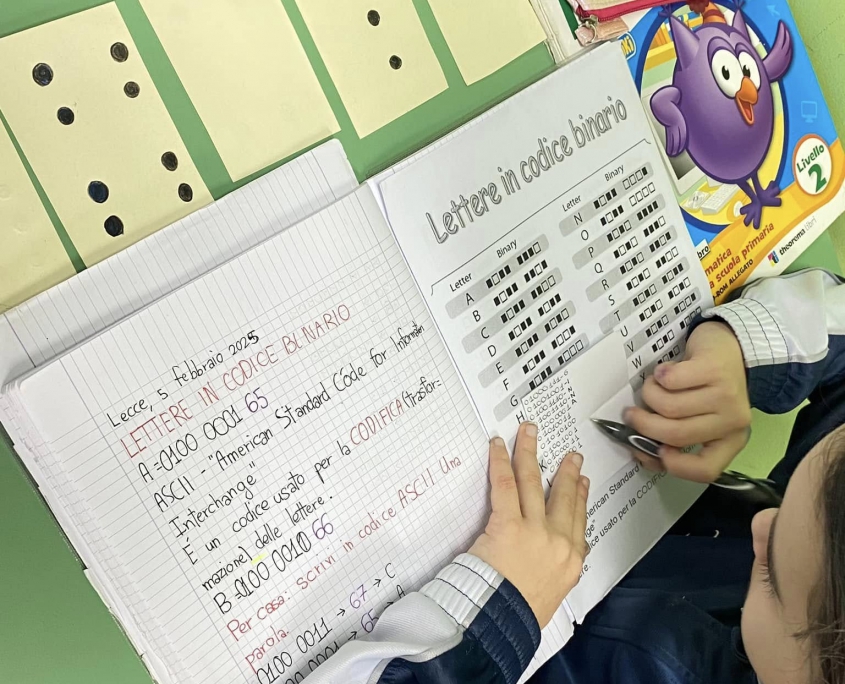 Lecce, 5 febbraio 2025
LETTERE IN CODICE BINARIO
A=0100 0001 65
ASCII - "American Standard Code for Information
Interchange"
È un codice usato per la CODIFICA (trasfor=
mazione) delle lettere.
B=0100 0010 66
Per casa: scrivi in codice ASCII una
parola.
0100 0011 → 67 → C
0100 0001 → 65 → A
Lettere in codice binario
Letter Binary
A
B
C
D
E
F
G
H
K
Letter Binary
N
O
P
Q
R
S
T
U
V
W
merican Standard
ge"
ice usato per la CODIFIC
re.
Livello
2
matica
a scuola primaria
ROM ALLEGATO
theorema libri